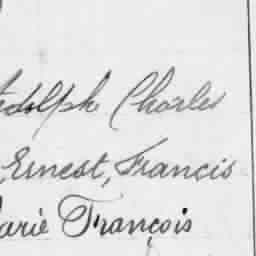 Adolph Charles
Ernest, Francis
Marie François